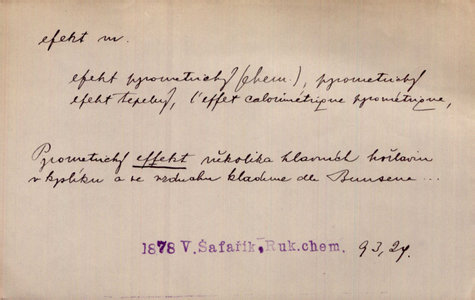 efekt m.
efekt pyrometrický (chem.), pyrometrický
efekt tepelný, l'effet calorimétrique pyrométrique,
Pyrometrický effekt několika hlavních hořlavin
v kyslíku a ve vzduchu klademe dle Bunsena ...
1878 V. Šafařík, Ruk. chem. 93, 24.